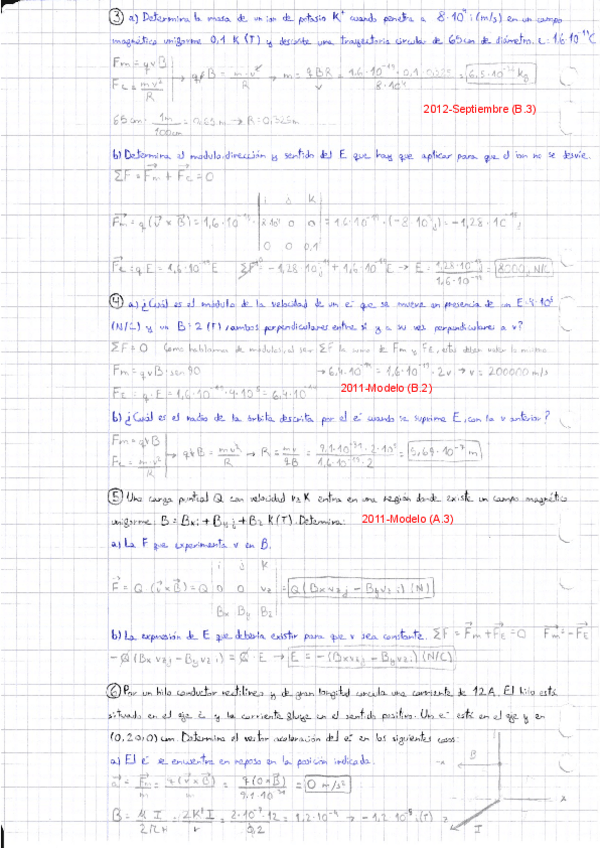 ③ a) Determina la masa de un ion de potasio K⁺ cuando penetra a 8·10⁴ i (m/s) en un campo
magnético uniforme 0,1 K (T) y describe una trayectoria circular de 65 cm de diámetro. e: 1,6·10⁻¹⁹ C
Fm = qvB
Fc = m·v²/R → qvB = m·v²/R → m = qBR/v = 1,6·10⁻¹⁹·0,1·0,325/8·10⁴ = 6,5·10⁻²⁶ kg
65 cm · 1m/100cm = 0,65 m → R = 0,325 m
2012-Septiembre (B.3)
b) Determina el modulo, dirección y sentido del E que hay que aplicar para que el ion no se desvíe.
ΣF = Fm + Fe = 0
i j K
Fm = q (v × B) = 1,6·10⁻¹⁹ · 8·10⁴ 0 0 = 1,6·10⁻¹⁹ · (-8·10³ j) = -1,28·10⁻¹⁵ j
0 0 0,1
Fe = q E = 1,6·10⁻¹⁹ E ΣF = -1,28·10⁻¹⁵ j + 1,6·10⁻¹⁹ E → E = 1,28·10⁻¹⁵/1,6·10⁻¹⁹ = 8000 j N/C
④ a) ¿Cuál es el módulo de la velocidad de un e⁻ que se mueve en presencia de un E = 4·10⁵
(N/C) y un B = 2 (T), ambos perpendiculares entre sí y a su vez perpendiculares a v?
ΣF = 0 Como hablamos de modulos, al ser ΣF la suma de Fm y FE, estos deben valer lo mismo
Fm = qvB · sen 90 → 6,4·10⁻¹⁴ = 1,6·10⁻¹⁹ · 2v → v = 200000 m/s
FE = q·E = 1,6·10⁻¹⁹ · 4·10⁵ = 6,4·10⁻¹⁴
2011-Modelo (B.2)
b) ¿Cuál es el radio de la órbita descrita por el e⁻ cuando se suprime E, con la v anterior?
Fm = qvB
Fc = m·v²/R → qvB = mv²/R → R = mv/qB = 9,1·10⁻³¹·2·10⁵/1,6·10⁻¹⁹·2 = 5,69·10⁻⁷ m
⑤ Una carga puntual Q con velocidad vz K entra en una región donde existe un campo magnético
uniforme B = Bx i + By j + Bz K (T). Determina:
2011-Modelo (A.3)
a) La F que experimenta v en B.
i j K
F = Q (v × B) = Q 0 0 vz = Q (Bx vz j - By vz i) (N)
Bx By Bz
b) La expresión de E que debería existir para que v sea constante. ΣF = Fm + FE = 0 Fm = -FE
-Q (Bx vz j - By vz i) = Q · E → E = -(Bx vz j - By vz i) (N/C)
⑥ Por un hilo conductor rectilíneo y de gran longitud circula una corriente de 12 A. El hilo está
situado en el eje z y la corriente fluye en el sentido positivo. Un e⁻ está en el eje y en
(0, 20, 0) cm. Determina el vector aceleración del e⁻ en los siguientes casos:
a) El e⁻ se encuentra en reposo en la posición indicada.
a = Fm/m = q (v × B)/m = q (0 × B)/9,1·10⁻³¹ = 0 m/s²
B = μ I/2πr = 2K' I/r = 2·10⁻⁷·12/0,2 = 1,2·10⁻⁵ → -1,2·10⁻⁵ i (T)
B
I